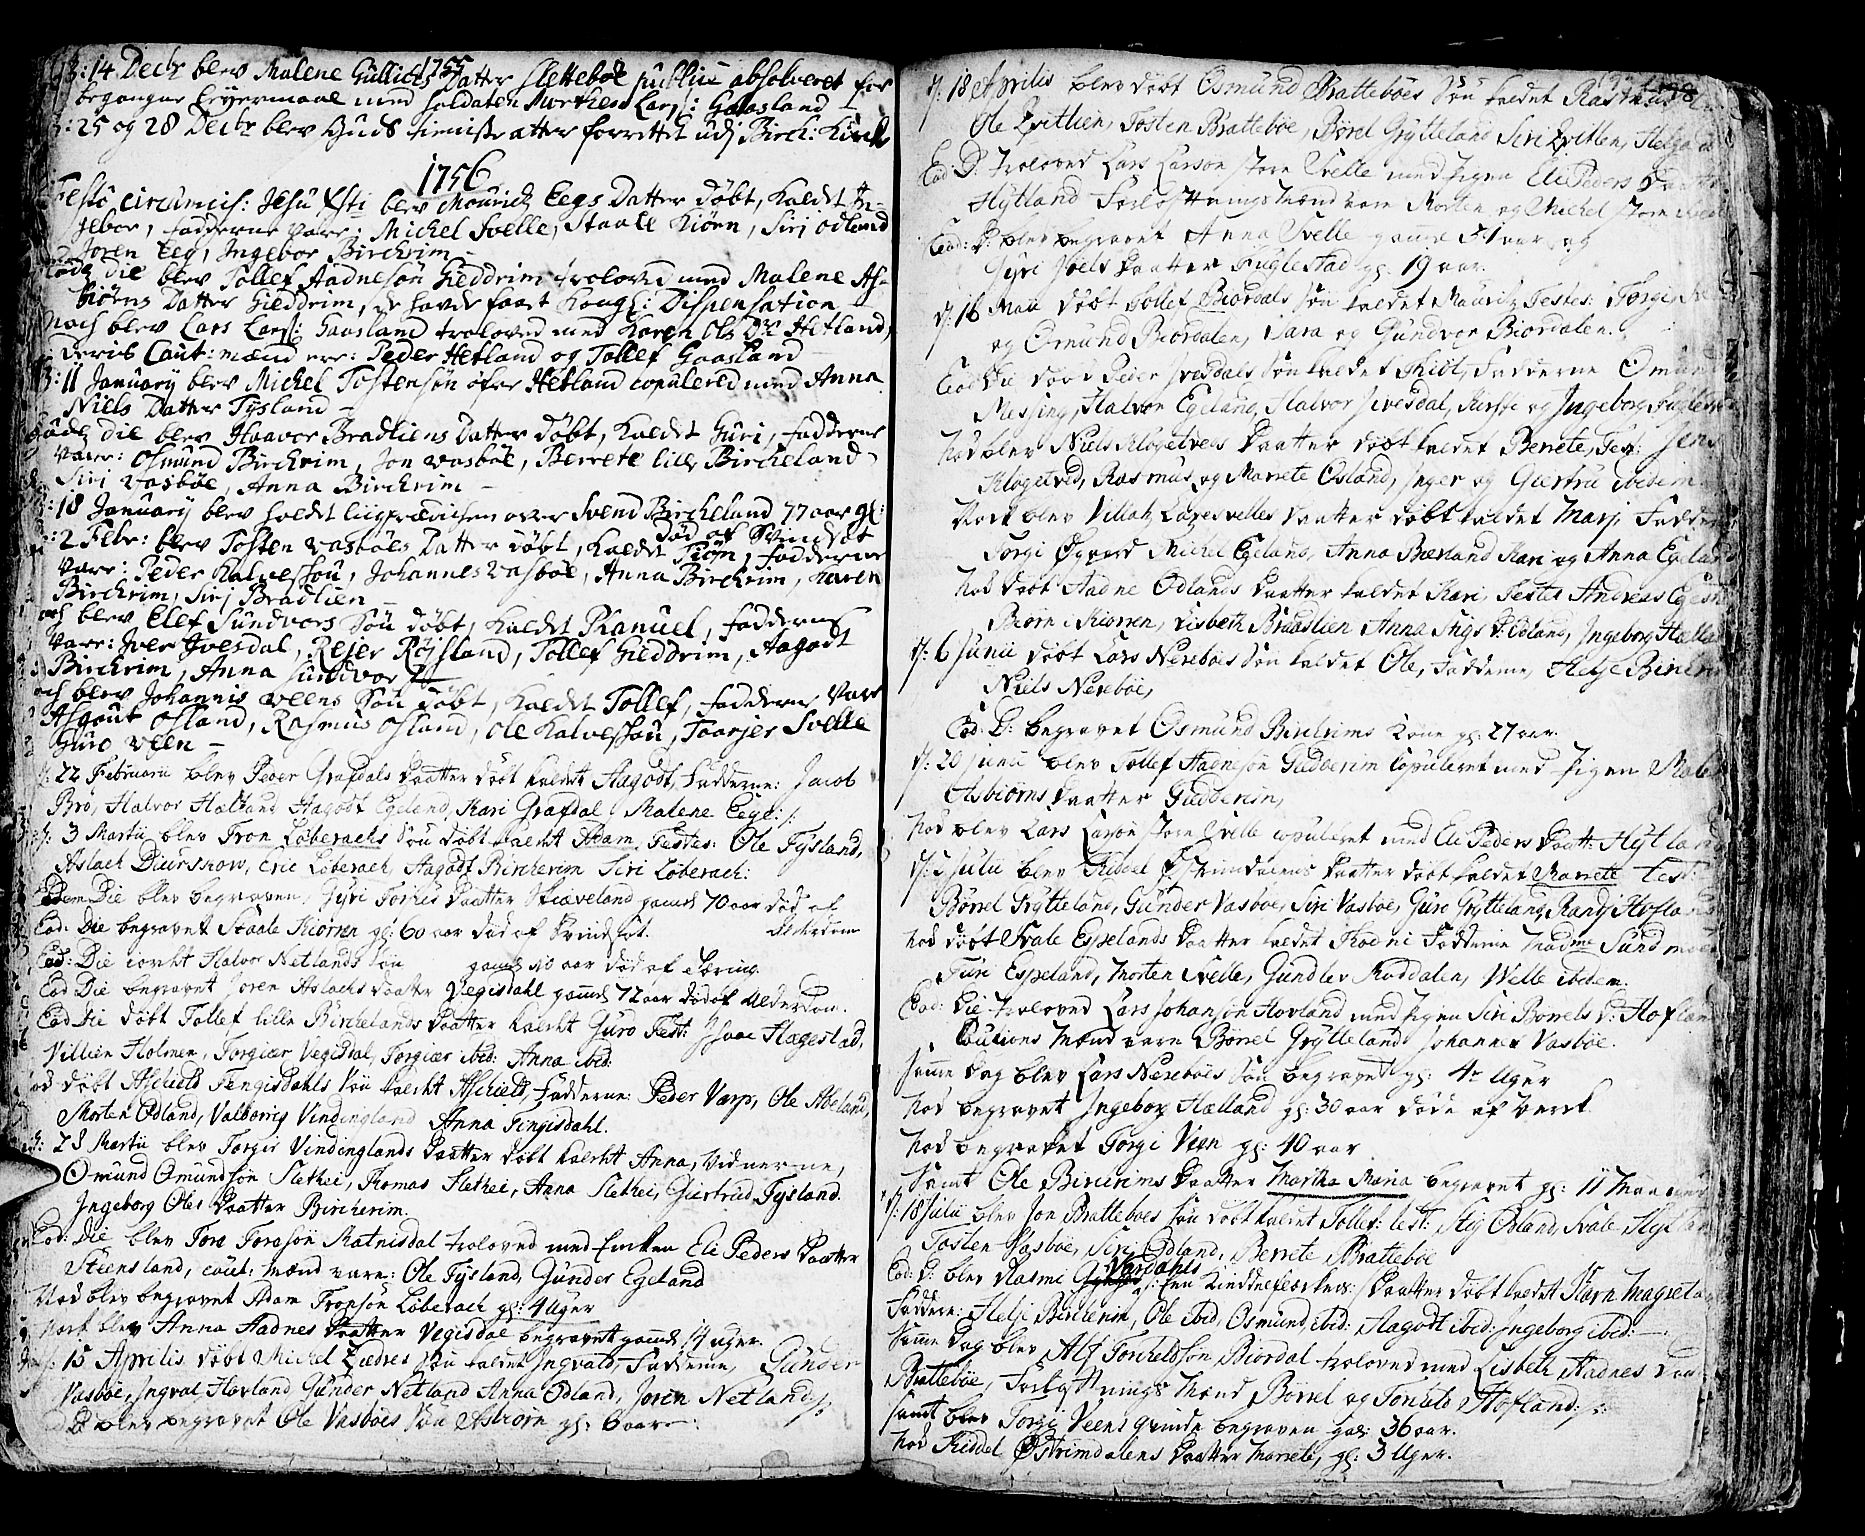 1755
d: 14 Decbr blev Malene Gullichs Datter Slettebøe publice absolveret for
begangne Leyermaal med Soldaten Morthen Lars: Gaasland
d: 25 og 28 Decbr blev Guds tieniste atter forrettet udi Birch: Kircke
1756
Festo circumcis: Jesu Xsti blev Mouritz Eegs Datter døbt, kaldt In-
gebor, fadderne vare: Michel Svelle, Staale Kiørn, Siri Odland
Joren Eeg, Ingebor Birchrim
Eodem die blev Tollef Aadnesøn Gieddrim trolovet med Malene As-
biørns Datter Gieddrim, de havde faaet Kongl: Dispensation
Noch blev Lars Lars: Gaasland troloved med Karen Ols Dtr Hetland,
Deris Caut: mænd ere: Peder Hetland og Tollef Gaasland
d: 11 January blev Michel Tostensøn øfre Hetland copulered med Anna
Niels Datter Tysland
Eodem die blev Haavor Bradliens Datter døbt, kaldt Guri, fadderne
vare: Osmund Birchrim, Jon Vasbøe, Berrete lille Bircheland
Siri Vasbøe, Anna Birchrim
d: 18 January blev holdt liigprædichen over Svend Bircheland 77 aar gl:
død af Svindsot
d: 2 Febr: blev Tosten Vasbøes Datter døbt, kaldt Tiøm, fadderne
vare: Peder Kalvessou, Johannes Vasbøe, Anna Birchrim, Karen
Birchrim, Siri Bradlien
och blev Elef Sundvors Søn døbt, kaldt Ranuel, fadderne
vare: Iver Ivesdal, Rejer Røysland, Tollef Gieddrim, Aagodt
Birchrim, Anna Sundvor
och blev Johannis Veens Søn døbt, kaldt Tollef, fadderne vare
Asgout Osland, Rasmus Osland, Ole Kalvessou, Taarjer Svelle
Guro Veen
d: 22 Februarii blev Peder Grafdals Daatter døbt kaldet Aagodt, Fadderne: Jacob
Bro, Halvor Hætland Aagodt Egeland, Kari Grafdal, Malene Eege
d: 3 Martii blev Fron Løberachs Søn døbt kaldet Adam, Testes: Ole Tysland,
Aslach Diursnow, Eric Løberach, Aagodt Bircherim Siri Løberach:
Eodem Die blev begraven, Gyri Torkis Daatter Skiæveland gaml 70 aar død af
Alderdom
Eod: Die begravet Staale Kiørren gl: 60 aar død af Svindsot.
Eod: Die iordet Halvor Netlands Søn gaml 20 aar død af Tæring
Eod Die begravet Joren Aslachs Daatter Vegisdahl gaml 72 aar død af Alderdom.
Eod Die døbt Tollef lille Birchelands Daatter kaldet Guro Test: Isaac Hagestad,
Villien Holmen, Torgiær Vegisdal, Torgiær ibid: Anna ibid:
Nod døbt Aschield Tengisdahls Søn kaldet Aschield, Fadderne: Peder Varp, Ole Abeland,
Morten Odland, Valborrig Vindingland Anna Tingisdahl.
d: 28 Martii blev Torgis Vindinglands Daatter døbt kaldet Anna, Vidnerne,
Omund Omundsøn Sletthei, Thomas Slethei, Anna Slethei, Giertrud Tysland.
Ingeborg Oles Daatter Bircherim.
Eod: Die blev Tore Toresøn Ratnisdal trolovet med Enken Eli Peders Daatter
Steensland, Caut: mænd vare: Ole Tysland, Gunder Egeland
Nod blev begravet Adam Fronsøn Løberach gl: 4 Uger
Nock blev Anna Aadnes Daatter Vegisdal begravet gaml 14 uger.
d: 15 Aprilis døbt Michel Lædres Søn kaldet Ingvald, Fadderne, Gunder
Vasbøe, Ingval Hovland Gunder Netland Anna Odland, Joren Netland
D: blev begravet Ole Vasbøes Søn Asbiørn gl: 6 aar
d: 18 Aprilis blev døbt Osmund Bratteboes Søn kaldet Rasmus
Ole Qvitlien, Tosten Brattebøe, Børel Grytteland Siri Qvitlen, Helga
Eod: D: troloved Lars Larsøn store Svelle med pigen Eli Peders Daatter
Hytland Forløftningsmænd vare Morten og Michel store Svelle
Eod: D: blev begravet Anna Svelle gaml 51 aar, og
Gyri Joels Daatter Fuglestad gl: 19 aar.
d: 16 Maii døbt Tollef Biordals Søn kaldet Mauritz Testes: Torgi
og Osmund Biordalen, Sara og Gundvor Biordalen.
Eod Die døbt Peder Ivesdals Søn kaldet Kiøt, Fadderne Omund
Messing, Halvon Egeland, Halvor Ivesdal, Kirsti og Ingeborg Fuglestad
Nod blev Niels Klogetveds Daatter døbt kaldet Berrete, Test: Jens
Klogetved, Rasmus og Marrete Osland, Inger og Giertru ibidem
Nock blev Villah Laxesvelles Daatter døbt kaldet Marj, Fadder:
Torgi Øgaard Michel Egeland, Anna Bærland Kari og Anna Egeland
Nod døbt Aadne Odlands Daatter kaldet Kari, Testes Andreas Egeland
Biørn Kiørren, Lisbeth Braadlien Anna Stigs D: Odland, Ingeborg Hælland
d: 6 Junii døbt Lars Nesebøes Søn kaldet Ole, Fadderne, Helje Birkrem
Niels Nesebøe,
Eod: D: begravet Osmund Birchrims Kone gl: 27 aar.
d: 20 Junii blev Tollef Aadnesøn Gudderim Copuleret med Pigen Malene
Asbiørns Daatter Gudderim,
Nod blev Lars Larsøn store Svelle copuleret med Eli Peders Daatt: Hytland
d: Julii blev Kiddel Østrimdalens Daatter døbt kaldet Marrete Test:
Børrel Grytteland, Gunder Vasbøe, Siri Vasbøe, Guri Grytteland Randj Hofland
Nod døbt Svale Espelands Daatter kaldet Thorni Fadderne Madme Sund
Turi Espeland, Morten Svelle, Gundlev Røddalen, Welle ibidem.
Eod: Die trolovet Lars Johansøn Hovland med Pigen Siri Børrels D: Hofland
Cautions Mænd vare Børrel Grytteland Johannes Vasbøe.
Samme Dag blev Lars Nesebøes Søn begravet gl: 4re Uger
Nod begravet Ingeborg Hælland gl: 30 aar døde af Værk
Nod begravet Torgi Veen gl: 40 aar
Samt Ole Bircrims Daatter Martha Maria begravet gl: 11 Maaneder
d: 18 Julii blev Jon Bratteboes Søn døbt kaldet Tollef: test: Stig Odland, Svale Hytland
Tosten Vasbøe, Siri Odland, Berrete Brattebøe
Eod: D: blev Rasmi Vasdahls /: En Kinddefødskes: Daatter døbt kaldet Karn Magreta
Faddere: Helje Bircherim, Ole ibid, Osmund ibid: Aagodt ibid: Ingeborg ibid:
Samme Dag blev Alf Torkeldsøn Biordal trolovet med Lisbeth Aadnes Daatter
Brattebøe, Forløftnings Mænd Børrel og Tonnes Hofland
Samt blev Torgi Veens Qvinde begraven gal: 36 aar.
Nod Kiddel Østrimdalens Daatter Marrete, gl: 3 Uger.